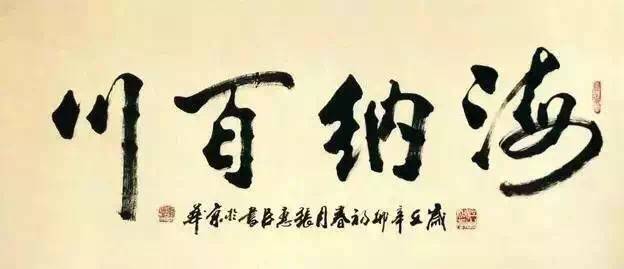 海纳百川
岁在辛卯初春月张惠臣书于京华